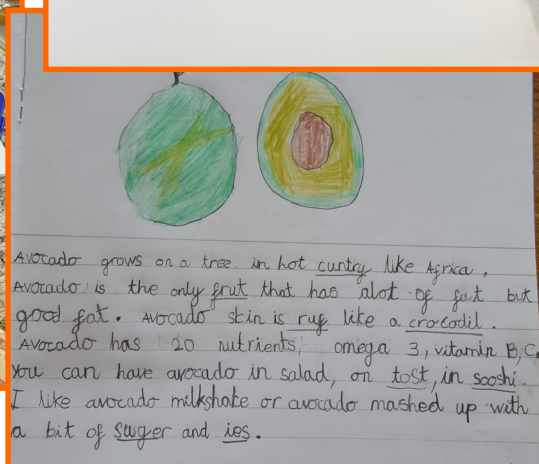 Avocado grows on a tree in hot cuntry like Africa.
Avocado is the only frut that has alot of fat but
good fat. Avocado skin is ruf like a crocodil.
Avocado has 20 nutrients, omega 3, vitamin B, C.
You can have avocado in salad, on tost, in sooshi.
I like avocado milkshake or avocado mashed up with
a bit of suger and ies.